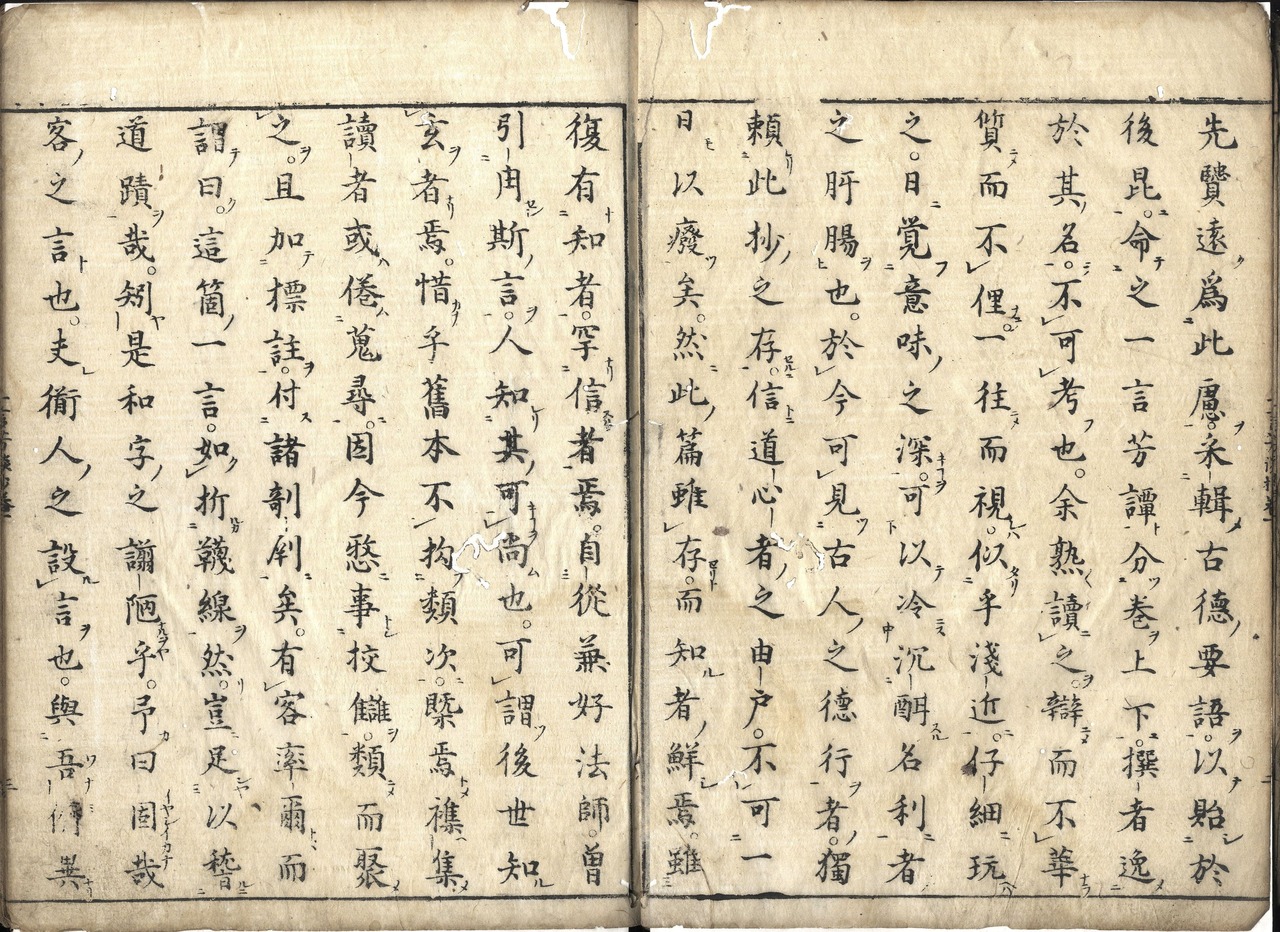 先賢遠爲此慮。釆輯古德要語。以貽於
後昆。命之一言芳譚。分卷上下。撰者逸
於其名。不可考也。余熟讀之。辯而不華
質而不俚。一往而視。似乎淺近。仔細玩
之。日覚意味之深。可以冷沉酣名利者
之肝腸也。於今可見古人之德行者。獨
頼此抄之存。信道心者之由戸。不可一
日以癈矣。然此篇雖存。而知者鮮焉。雖
復有知者。罕信者焉。自從兼好法師。曾
引用斯言。人知其可尚也。可謂後世知
玄者焉。惜乎舊本不拘類次。槩焉襍集
讀者或倦蒐尋。因今愍事挍讎。類而聚
之。且加標註。付諸剞劂矣。有客率爾而
謂曰。這箇一言。如折韈線然。豈足以稽
道蹟哉。矧是和字之謭陋乎。予曰固哉
客之言也。夫衜人之設言也。與吾儕異